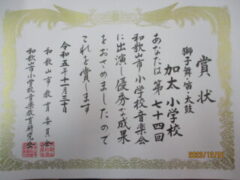 賞状
獅子舞・笛・太鼓
加太小学校
あなたは第七十四回
和歌山市小学校音楽会
に出演し優秀な成果
をおさめましたので
これを賞します
令和五年十一月三十日
和歌山市教育委員会
和歌山市小学校音楽教育研究会